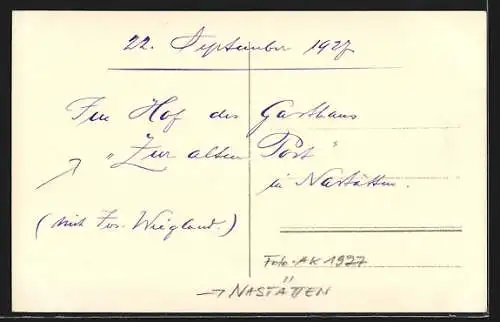 22. September 1927
Im Hof des Gasthaus
"Zur alten Post"
in Nastätten.
(mit Jos. Wiegland.)
Foto-AK 1927
→ NASTÄTTEN